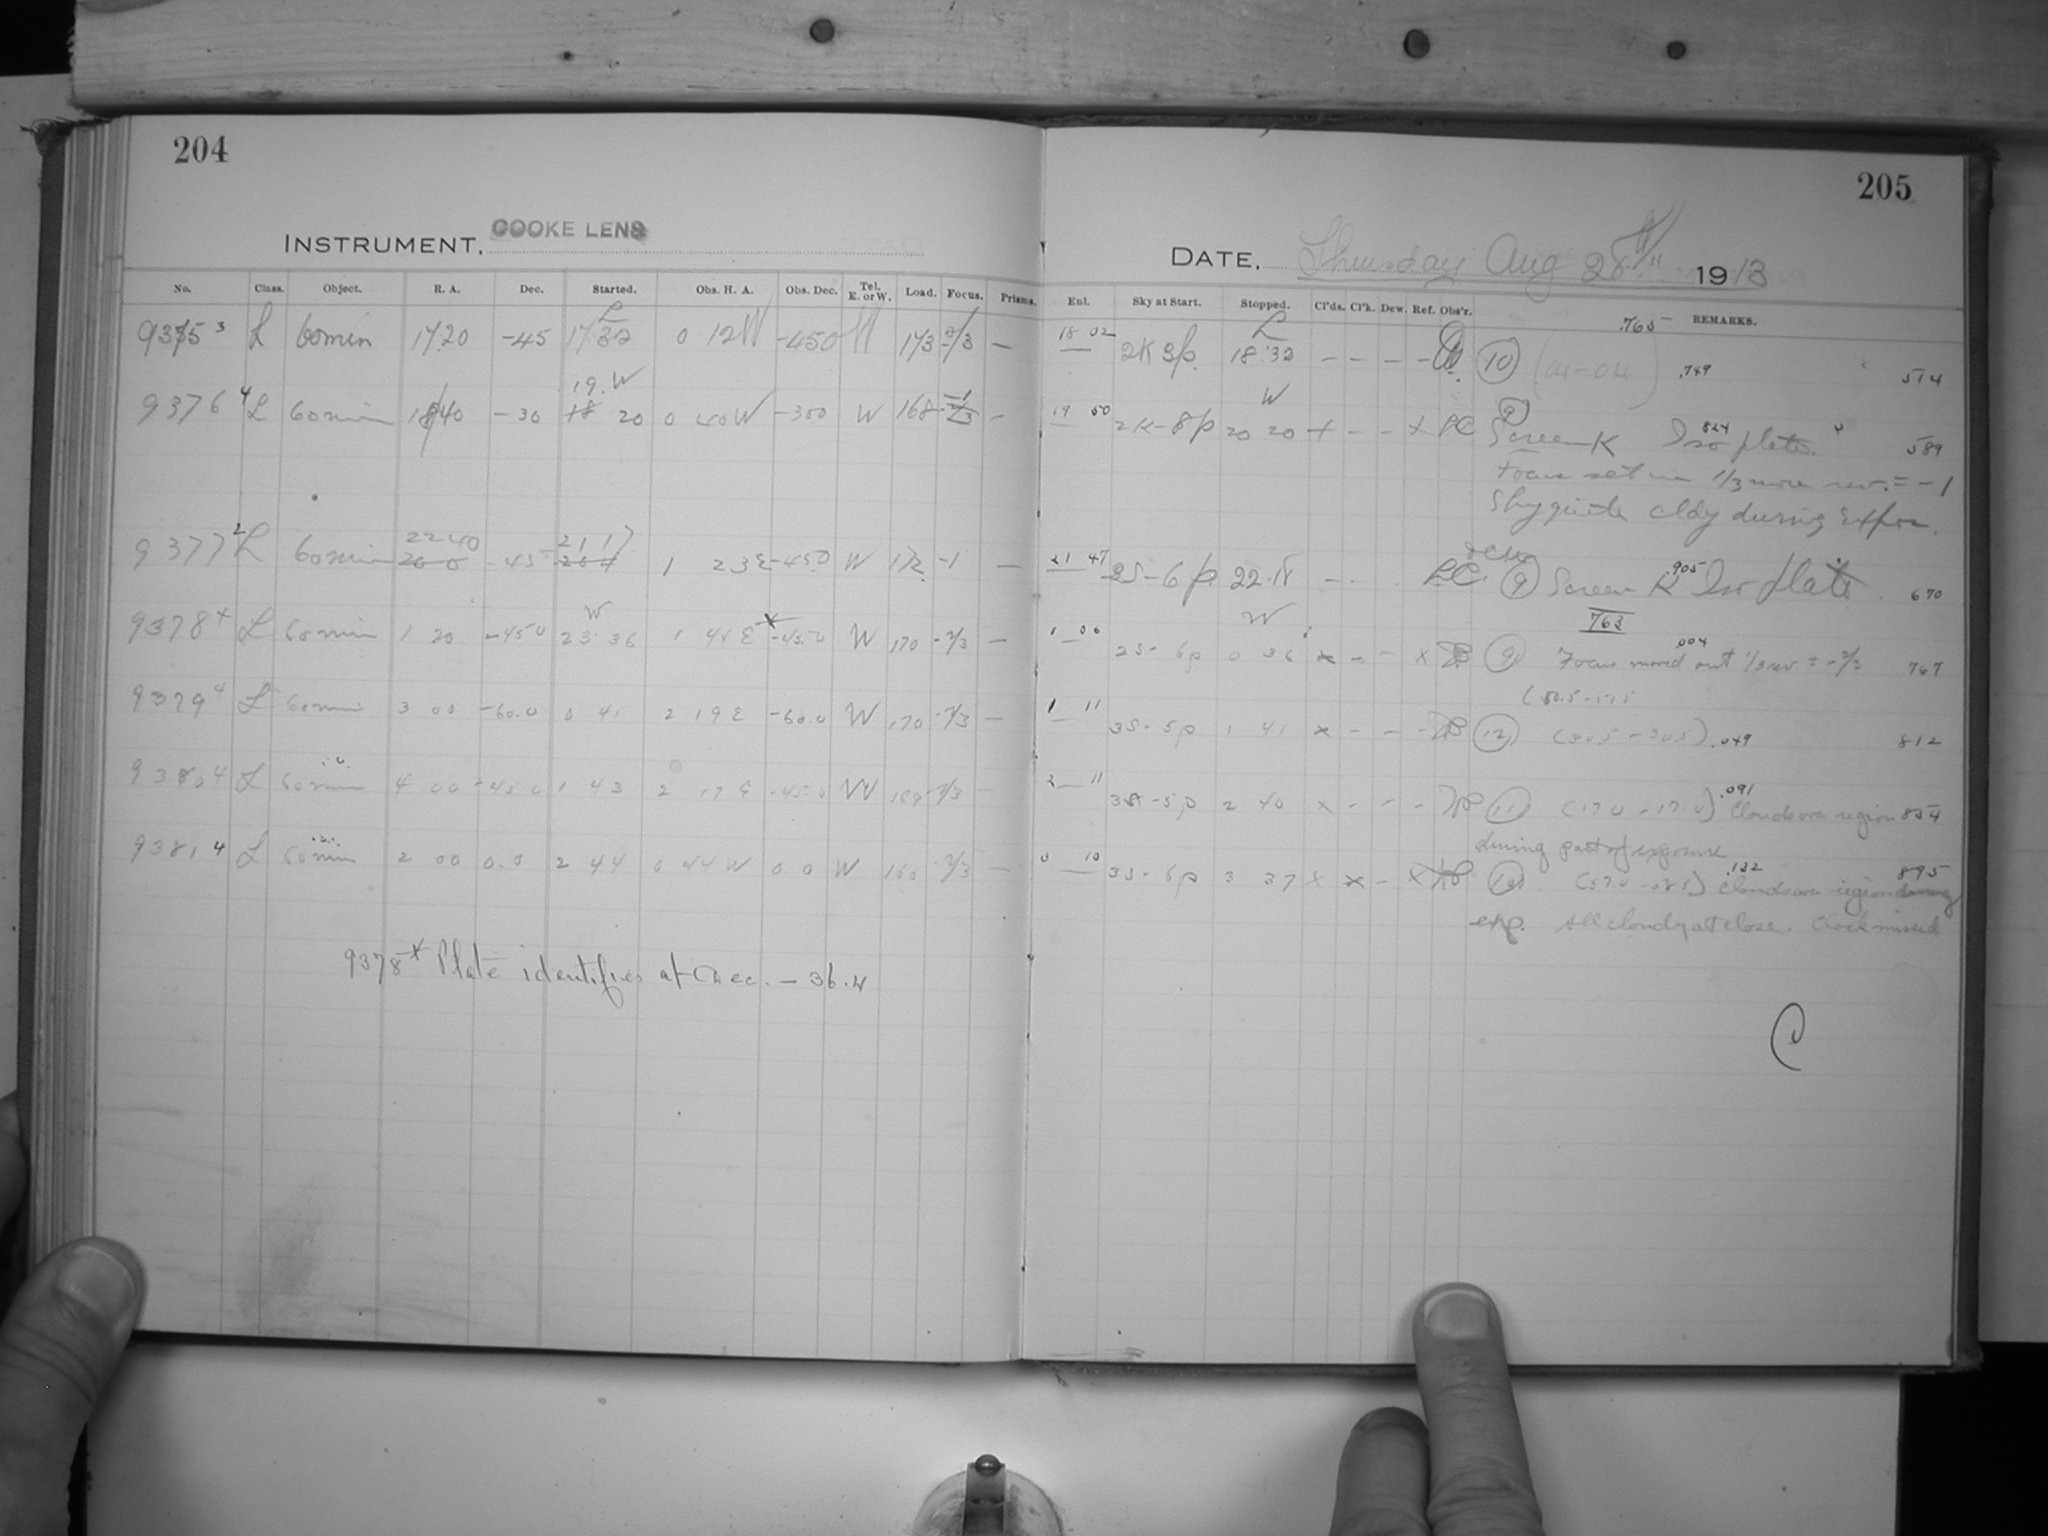 204
INSTRUMENT. COOKE LENS
No. Class. Object. R. A. Dec. Started. Obs. H. A. Obs. Dec. Tel. E. or W. Load. Focus. Prisms.
9375 3 L 60min 17.20 -45 17 32 0 12 W -450 W 173 -2/3 —
9376 4 L 60min 1840 -30 19 W 18 20 0 40 W -300 W 168 -1 —
9377 2 L 60min 2240 20 0 -45 21 17 1 23 E -450 W 172 -1 —
9378 4 L 60min 1 20 -45 0 W 23 36 1 44 E * -45.0 W 170 -2/3 —
9379 4 L 60min 3 00 -60.0 0 41 2 19 E -60.0 W 170 -2/3 —
9380 4 L 60min 4 00 -45 0 1 43 2 17 E -45.0 W -2/3 —
9381 4 L 60min 2 00 0.0 2 44 0 44 W 0 0 W 160 -2/3 —
9378* Plate identifies at Dec. - 36.
205
DATE. Thursday Aug 28th 1913
Enl. Sky at Start. Stopped. Cl'ds. Cl'k. Dew. Ref. Obs'r. REMARKS.
18 02 2K 8p. L 18.32 — — — — 10 .765 .749 514
19 50 2K-8p W 20 20 + — — + 9 Screen K Iso plate. .824 589
Focus set in 1/3 more rev. = -1
Sky quite cldy during expos.
21 47 2S-6p 22.17 — — 9 Screen K Iso plate .905 670
763
1 06 2S-6p W 0 36 x — — x 9 Focus moved out 1/3 rev. = -2/3 .004 767
1 11 3S-5p 1 41 x — — — 12 .049 812
2 11 3S-5p 2 40 x — — — 11 (17.0 - 17.0) .091 Clouds over region 854
during part of exposure
10 3S-6p 3 37 x x — x 10 .132 Clouds over region during 895
exp. All cloudy at close. Clock missed
C